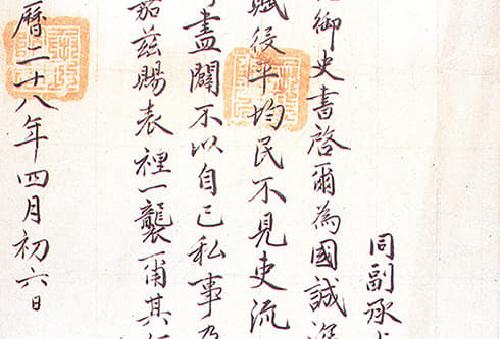 同副承
御史書啓爾為國誠深
賦役平均民不見吏流
盡闢不以自己私事乃
嘉茲賜表裡一襲爾其
曆二十八年四月初六日